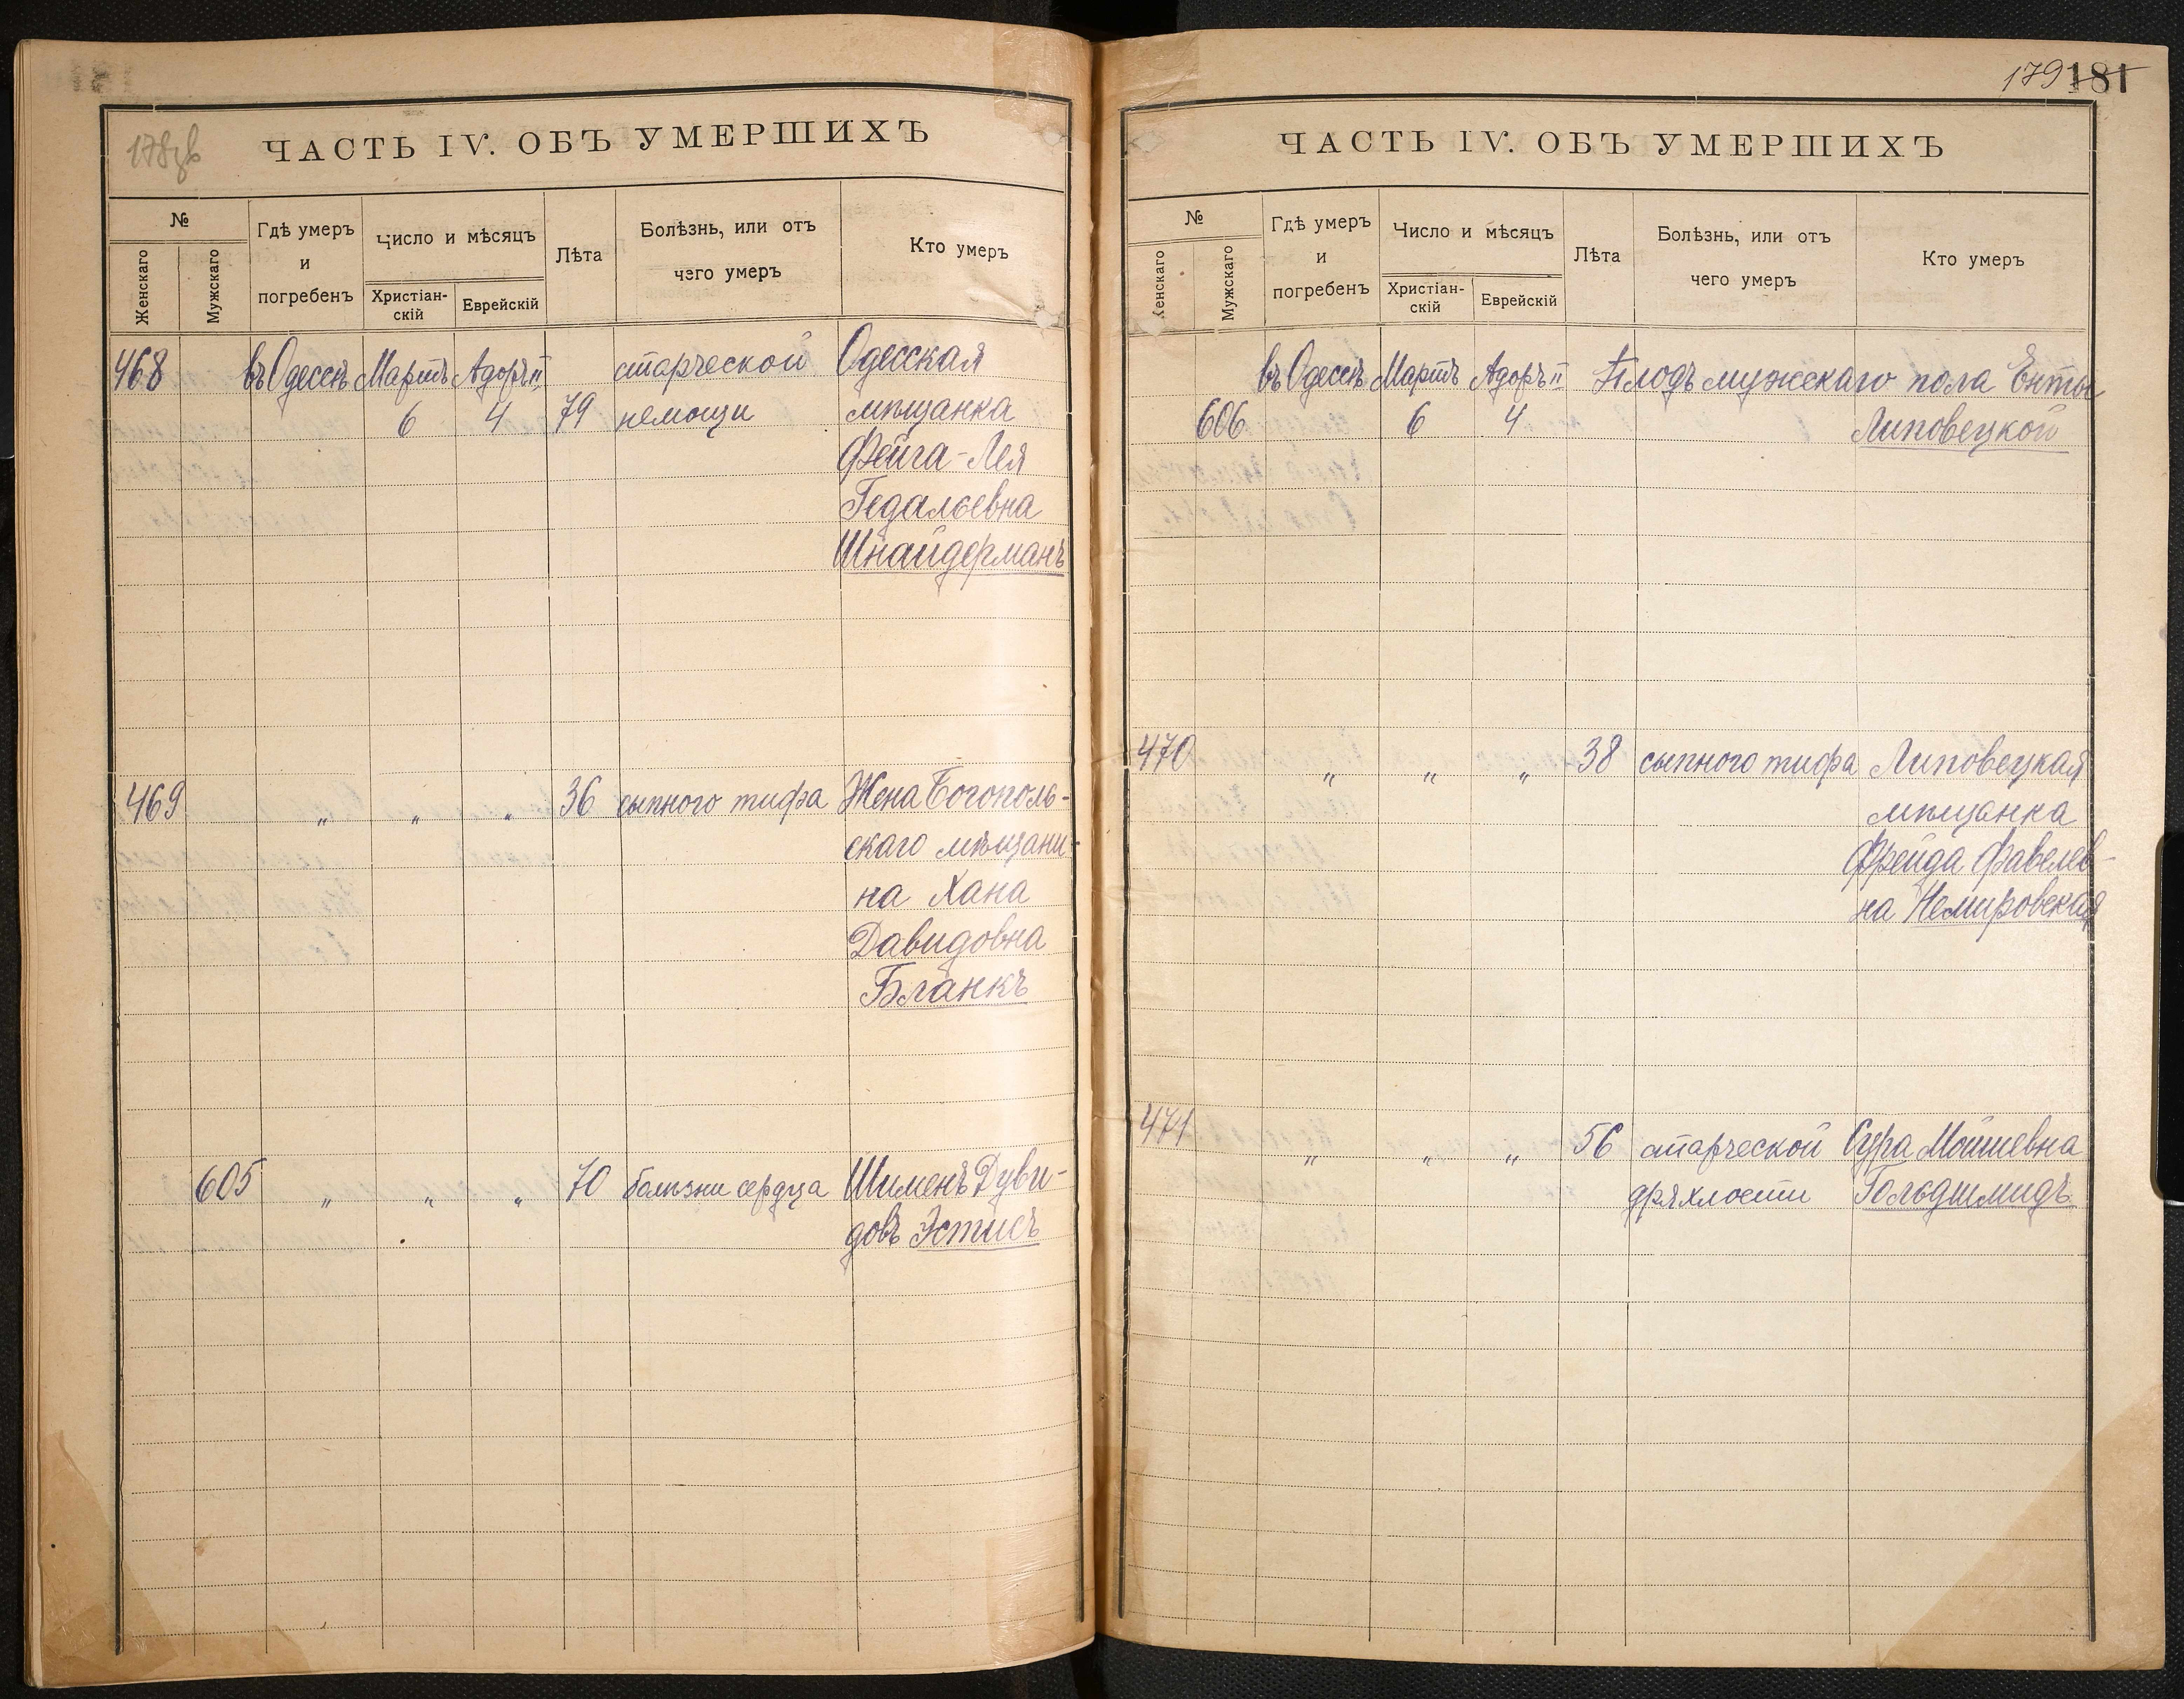 178 об
ЧАСТЬ IV. ОБЪ УМЕРШИХЪ
№
Женскаго
Мужскаго
Гдѣ умеръ
и
погребенъ
Число и мѣсяцъ
Христіан-
скій
Еврейскій
Лѣта
Болѣзнь, или отъ
чего умеръ
Кто умеръ
468 въ Одессѣ Мартъ Адоръ II старческой Одесская
6 4 79 немощи мѣщанка
Фейга-Лея
Гедальевна
Шнайдерманъ
469 " " " 36 сыпного тифа Жена Богополь-
скаго мѣщани-
на Хана
Давидовна
Бланкъ
605 " " " 70 болѣзни сердца Шименъ Дуви-
довъ Эстисъ
179 181
ЧАСТЬ IV. ОБЪ УМЕРШИХЪ
№
Женскаго
Мужскаго
Гдѣ умеръ
и
погребенъ
Число и мѣсяцъ
Христіан-
скій
Еврейскій
Лѣта
Болѣзнь, или отъ
чего умеръ
Кто умеръ
въ Одессѣ Мартъ Адоръ II Плодъ мужскаго пола Енты
606 6 4 Липовецкой
470 " " " 38 сыпного тифа Липовецкая
мѣщанка
Фрейда Фавелев-
на Немировская
471 " " " 56 старческой Сура Мошиевна
дряхлости Гольдшмидъ